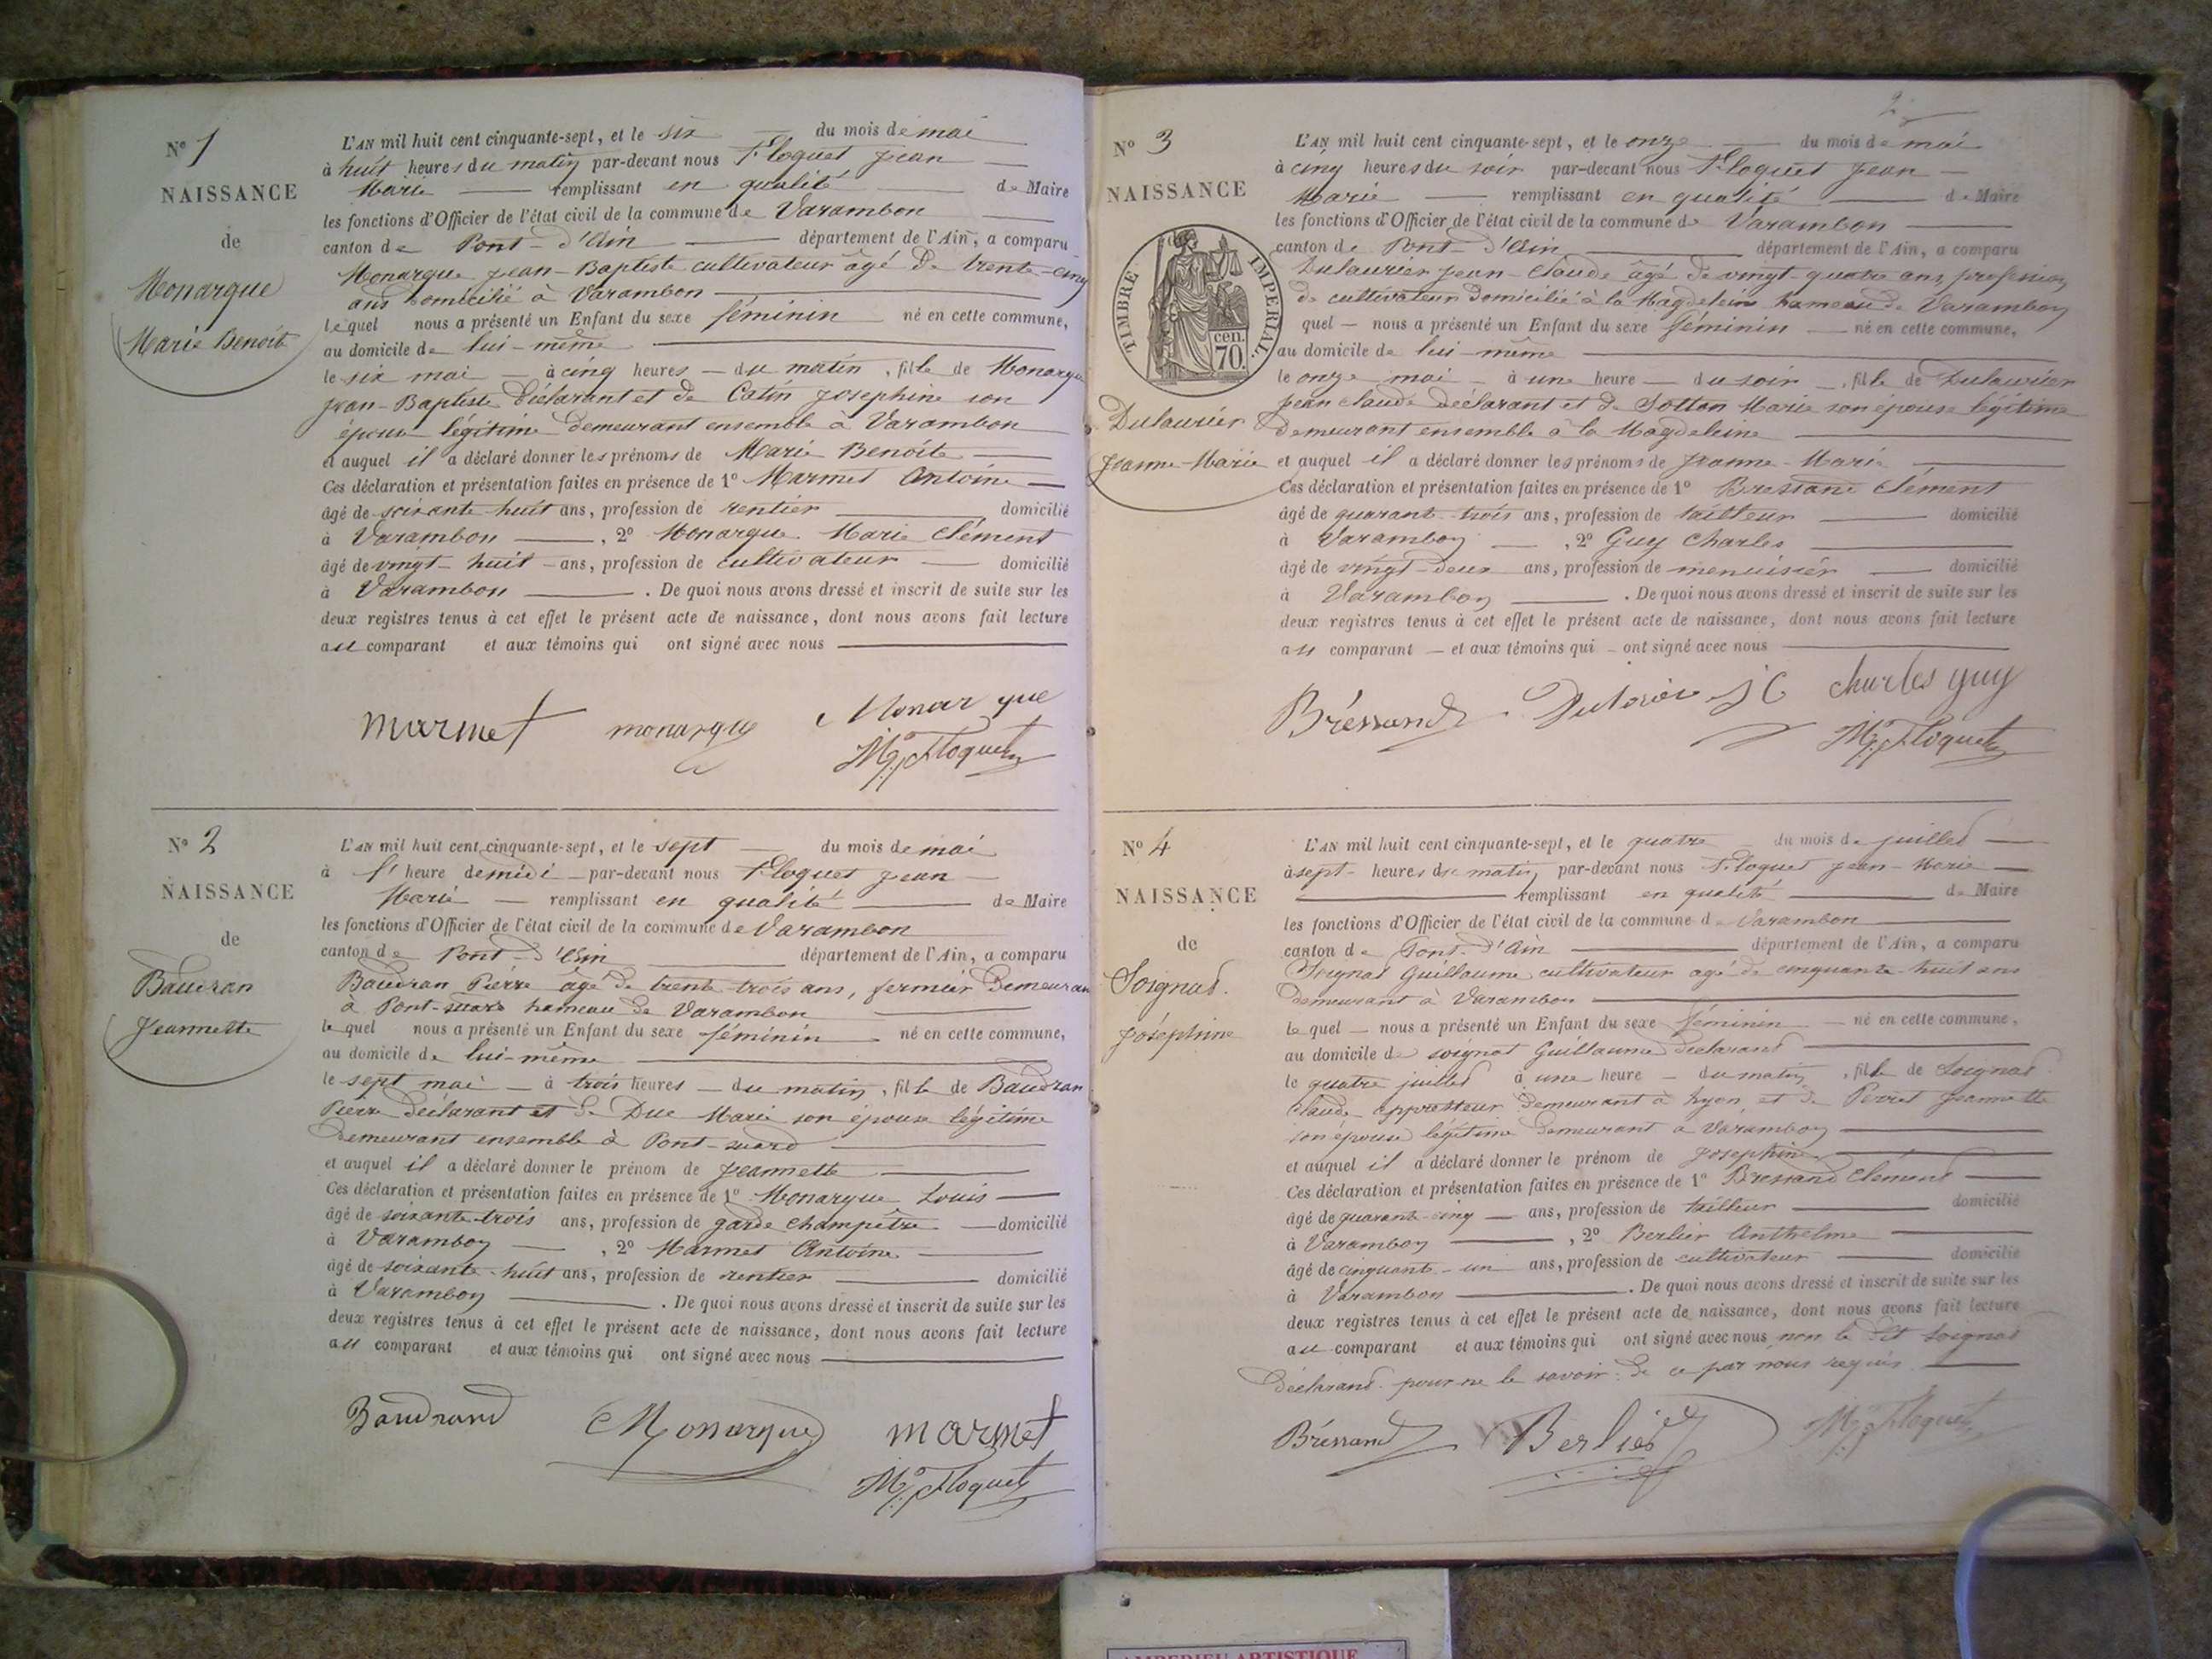 Nº 1
NAISSANCE
de
Monarque
Marie Benoîte
L'AN mil huit cent cinquante-sept, et le six du mois de mai
à huit heures du matin par-devant nous Floquet Jean
Marie remplissant en qualité de Maire
les fonctions d'Officier de l'état civil de la commune de Varambon
canton de Pont-d'Ain département de l'Ain, a comparu
Monarque Jean-Baptiste cultivateur âgé de trente-cinq
ans domicilié à Varambon
lequel nous a présenté un Enfant du sexe féminin né en cette commune,
au domicile de lui-même
le six mai à cinq heures du matin, fille de Monarque
Jean-Baptiste déclarant et de Catin Josephine son
épouse légitime demeurant ensemble à Varambon
et auquel il a déclaré donner les prénoms de Marie Benoîte
Ces déclaration et présentation faites en présence de 1º Marmet Antoine
âgé de soixante-huit ans, profession de rentier domicilié
à Varambon, 2º Monarque Marie Clément
âgé de vingt-huit ans, profession de cultivateur domicilié
à Varambon. De quoi nous avons dressé et inscrit de suite sur les
deux registres tenus à cet effet le présent acte de naissance, dont nous avons fait lecture
au comparant et aux témoins qui ont signé avec nous
marmet monarque Monarque
Floquet
Nº 2
NAISSANCE
de
Baudran
Jeannette
L'AN mil huit cent cinquante-sept, et le sept du mois de mai
à l'heure de midi par-devant nous Floquet Jean
Marie remplissant en qualité de Maire
les fonctions d'Officier de l'état civil de la commune de Varambon
canton de Pont-d'Ain département de l'Ain, a comparu
Baudran Pierre âgé de trente-trois ans, fermier demeurant
à Pont-suard hameau de Varambon
lequel nous a présenté un Enfant du sexe féminin né en cette commune,
au domicile de lui-même
le sept mai à trois heures du matin, fille de Baudran
Pierre déclarant et de Duc Marie son épouse légitime
demeurant ensemble à Pont-suard
et auquel il a déclaré donner le prénom de Jeannette
Ces déclaration et présentation faites en présence de 1º Monarque Louis
âgé de soixante-trois ans, profession de garde champêtre domicilié
à Varambon, 2º Marmet Antoine
âgé de soixante-huit ans, profession de rentier domicilié
à Varambon. De quoi nous avons dressé et inscrit de suite sur les
deux registres tenus à cet effet le présent acte de naissance, dont nous avons fait lecture
au comparant et aux témoins qui ont signé avec nous
Baudrand Monarque marmet
Floquet
2
Nº 3
NAISSANCE
TIMBRE IMPERIAL
cen. 70.
Dulaurier
Jeanne-Marie
L'AN mil huit cent cinquante-sept, et le onze du mois de mai
à cinq heures du soir par-devant nous Floquet Jean
Marie remplissant en qualité de Maire
les fonctions d'Officier de l'état civil de la commune de Varambon
canton de Pont-d'Ain département de l'Ain, a comparu
Dulaurier Jean-Claude âgé de vingt-quatre ans, profession
de cultivateur domicilié à la Magdeleine hameau de Varambon
quel nous a présenté un Enfant du sexe féminin né en cette commune,
au domicile de lui-même
le onze mai à une heure du soir, fille de Dulaurier
Jean Claude déclarant et de Sotton Marie son épouse légitime
demeurant ensemble à la Magdeleine
et auquel il a déclaré donner les prénoms de Jeanne-Marie
Ces déclaration et présentation faites en présence de 1º Bressand Clément
âgé de quarante-trois ans, profession de tailleur domicilié
à Varambon, 2º Guy Charles
âgé de vingt-deux ans, profession de menuisier domicilié
à Varambon. De quoi nous avons dressé et inscrit de suite sur les
deux registres tenus à cet effet le présent acte de naissance, dont nous avons fait lecture
au comparant et aux témoins qui ont signé avec nous
Bréssand J C charles guy
Floquet
Nº 4
NAISSANCE
de
Soignat
Joséphine
L'AN mil huit cent cinquante-sept, et le quatre du mois de juillet
à sept heures du matin par-devant nous Floquet Jean-Marie
remplissant en qualité de Maire
les fonctions d'Officier de l'état civil de la commune de Varambon
canton de Pont-d'Ain département de l'Ain, a comparu
Soignat Guillaume cultivateur âgé de cinquante-huit ans
demeurant à Varambon
lequel nous a présenté un Enfant du sexe féminin né en cette commune,
au domicile de soignat Guillaume déclarant
le quatre juillet à une heure du matin, fille de Soignat
Claude appreteur demeurant à Lyon et de Perret Jeannette
son épouse légitime demeurant à Varambon
et auquel il a déclaré donner le prénom de Josephine
Ces déclaration et présentation faites en présence de 1º Bressand Clément
âgé de quarante-cinq ans, profession de tailleur domicilié
à Varambon, 2º Berlier Anthelme
âgé de cinquante-un ans, profession de cultivateur domicilié
à Varambon. De quoi nous avons dressé et inscrit de suite sur les
deux registres tenus à cet effet le présent acte de naissance, dont nous avons fait lecture
au comparant et aux témoins qui ont signé avec nous non le dit soignat
déclarant pour ne le savoir de ce par nous requis
Bréssand Berlier Floquet
AMBERIEU ARTISTIQUE